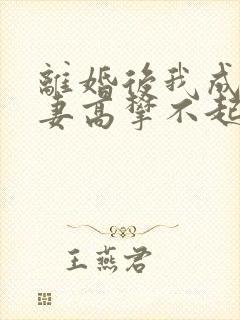 離婚後我成
妻高攀不起
王燕君